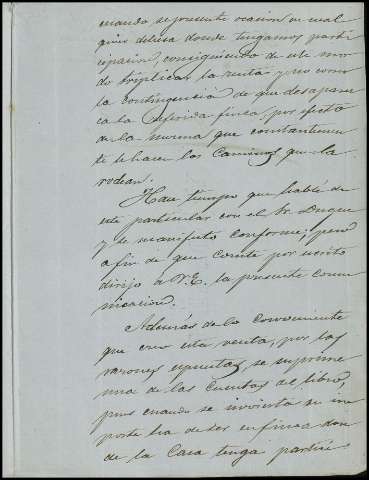 cuando se presente ocasion en cual
quier dehesa donde tengamos parti
cipacion, consiguiendo de este mo
do triplicar la renta y no corre
la contingencia de que desapares
ca la referida finca, por efecto
de la merma que constantemen
te le hacen los Caminos que la
rodean.
Hace tiempo que hablé de
este particular con el Sr. Duque
y se manifestó conforme; pero
a fin de que conste por escrito
dirijo á V.E. la presente comu
nicacion.
Además de lo conveniente
que creo esta venta, por las
razones espuestas, se suprime
una de las Cuentas del libro,
pues cuando se invierta su im
porte ha de ser en finca don
de la Casa tenga partici